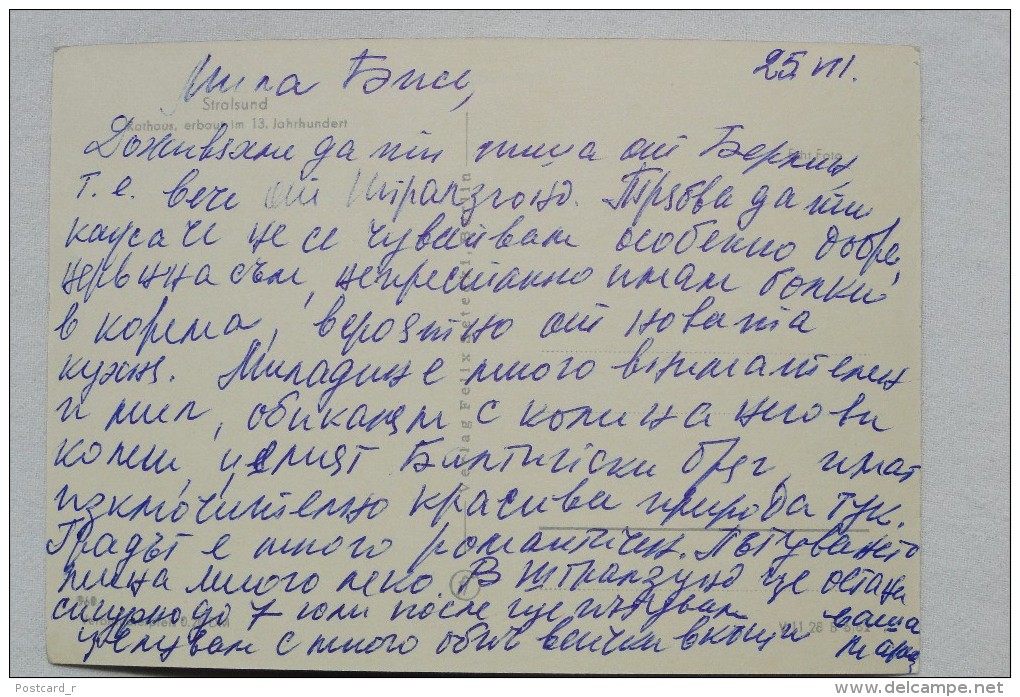 25. VII.
Мила Бисе,
Stralsund
Rathaus, erbaut im 13. Jahrhundert
Echt Foto
Доживяхме да ти пиша от Берлин,
т.е. вече от Щралзунд. Трябва да ти
кажа че не се чувствам особенно добре,
нервна съм, непрестанно имам болки
в корема, вероятно от новата
кухня. Миладин е много внимателен
и мил, обикаляме с кола на негови
колеги, целият Балтийски бряг, имат
изключително красива природа тук.
Градът е много романтичен. Пътуването
мина много леко. В Щралзунд ще остана
сигурно до 7 юли после ще пътувам
целувам с много обич всички вкъщи ваша
Verlag Felix Berlin
Postcard_r
www.delcampe.net